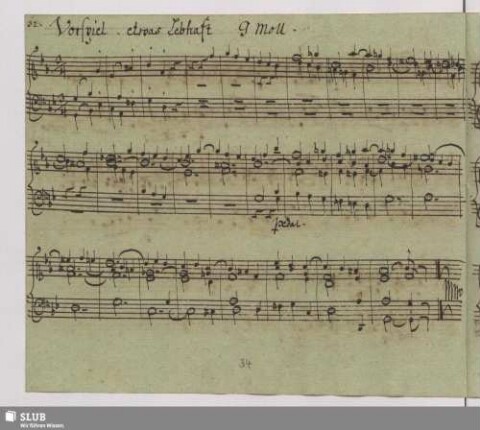 32. Vorspiel. etwas Lebhaft G Moll.
pedal.
34
SLUB
Wir führen Wissen.